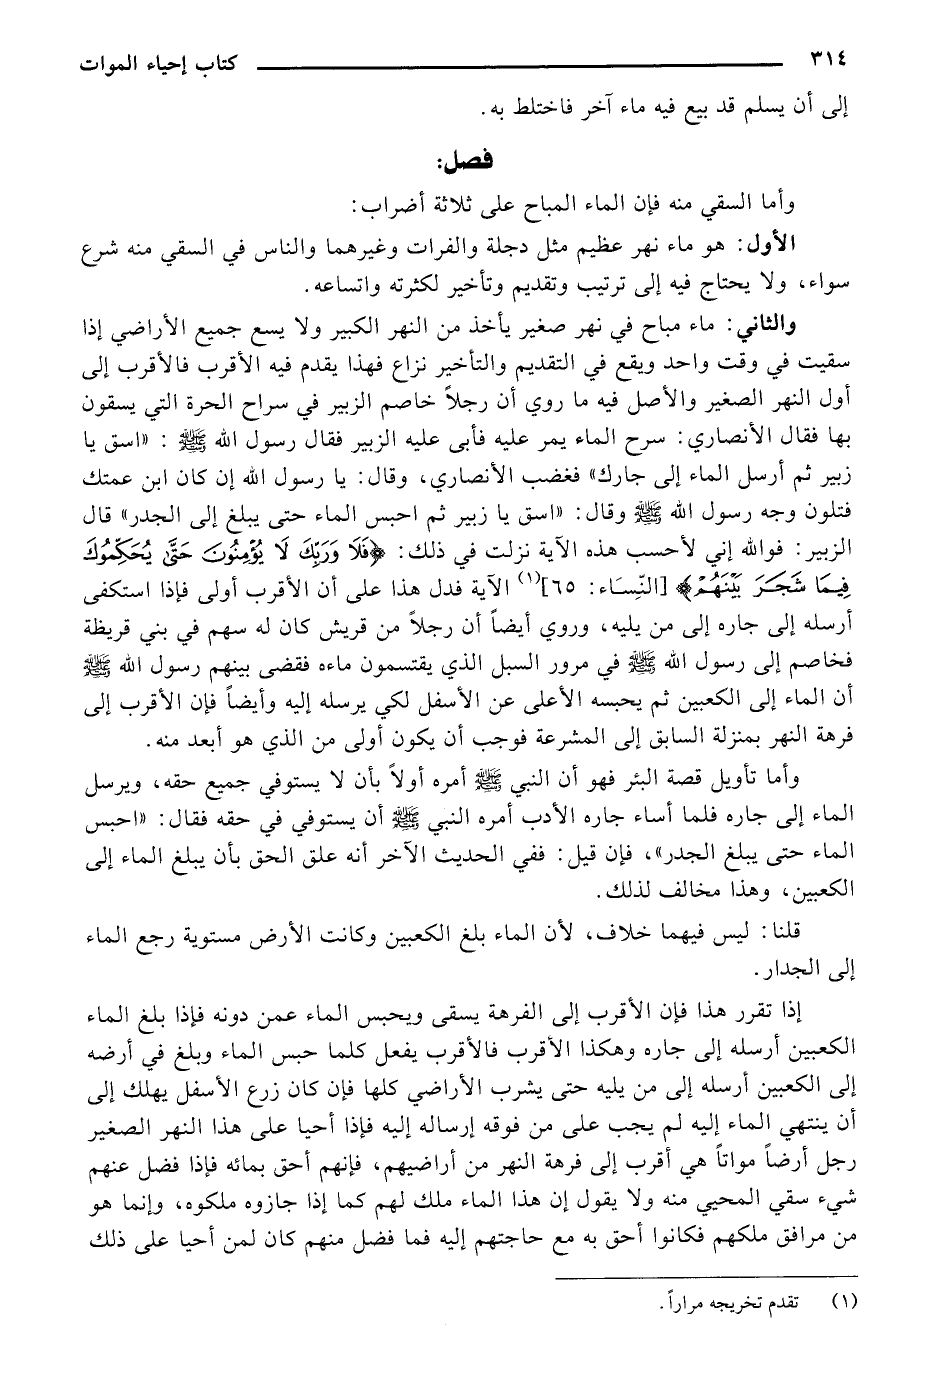 ٣١٤ كتاب إحياء الموات
إلى أن يسلم قد بيع فيه ماء آخر فاختلط به.
فصل:
وأما السقي منه فإن الماء المباح على ثلاثة أضراب:
الأول: هو ماء نهر عظيم مثل دجلة والفرات وغيرهما والناس في السقي منه شرع
سواء، ولا يحتاج فيه إلى ترتيب وتقديم وتأخير لكثرته واتساعه.
والثاني: ماء مباح في نهر صغير يأخذ من النهر الكبير ولا يسع جميع الأراضي إذا
سقيت في وقت واحد ويقع في التقديم والتأخير نزاع فهذا يقدم فيه الأقرب فالأقرب إلى
أول النهر الصغير والأصل فيه ما روي أن رجلاً خاصم الزبير في سراح الحرة التي يسقون
بها فقال الأنصاري: سرح الماء يمر عليه فأبى عليه الزبير فقال رسول الله ﷺ: «اسق يا
زبير ثم أرسل الماء إلى جارك» فغضب الأنصاري، وقال: يا رسول الله إن كان ابن عمتك
فتلون وجه رسول الله ﷺ وقال: «اسق يا زبير ثم احبس الماء حتى يبلغ إلى الجدر» قال
الزبير: فوالله إني لأحسب هذه الآية نزلت في ذلك: ﴿فَلَا وَرَبِّكَ لَا يُؤْمِنُونَ حَتَّى يُحَكِّمُوكَ
فِيمَا شَجَرَ بَيْنَهُمْ﴾ [النِّسَاء: ٦٥](١) الآية فدل هذا على أن الأقرب أولى فإذا استكفى
أرسله إلى جاره إلى من يليه، وروي أيضاً أن رجلاً من قريش كان له سهم في بني قريظة
فخاصم إلى رسول الله ﷺ في مرور السبل الذي يقتسمون ماءه فقضى بينهم رسول الله ﷺ
أن الماء إلى الكعبين ثم يحبسه الأعلى عن الأسفل لكي يرسله إليه وأيضاً فإن الأقرب إلى
فرهة النهر بمنزلة السابق إلى المشرعة فوجب أن يكون أولى من الذي هو أبعد منه.
وأما تأويل قصة البئر فهو أن النبي ﷺ أمره أولاً بأن لا يستوفي جميع حقه، ويرسل
الماء إلى جاره فلما أساء جاره الأدب أمره النبي ﷺ أن يستوفي في حقه فقال: «احبس
الماء حتى يبلغ الجدر»، فإن قيل: ففي الحديث الآخر أنه علق الحق بأن يبلغ الماء إلى
الكعبين، وهذا مخالف لذلك.
قلنا: ليس فيهما خلاف، لأن الماء بلغ الكعبين وكانت الأرض مستوية رجع الماء
إلى الجدار.
إذا تقرر هذا فإن الأقرب إلى الفرهة يسقى ويحبس الماء عمن دونه فإذا بلغ الماء
الكعبين أرسله إلى جاره وهكذا الأقرب فالأقرب يفعل كلما حبس الماء وبلغ في أرضه
إلى الكعبين أرسله إلى من يليه حتى يشرب الأراضي كلها فإن كان زرع الأسفل يهلك إلى
أن ينتهي الماء إليه لم يجب على من فوقه إرساله إليه فإذا أحيا على هذا النهر الصغير
رجل أرضاً مواتاً هي أقرب إلى فرهة النهر من أراضيهم، فإنهم أحق بمائه فإذا فضل عنهم
شيء سقي المحيي منه ولا يقول إن هذا الماء ملك لهم كما إذا جازوه ملكوه، وإنما هو
من مرافق ملكهم فكانوا أحق به مع حاجتهم إليه فما فضل منهم كان لمن أحيا على ذلك
(١) تقدم تخريجه مراراً.